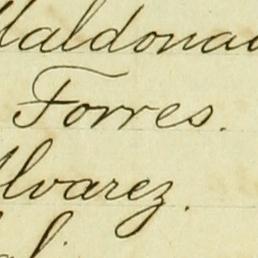 Maldonad
Torres.
Alvarez.